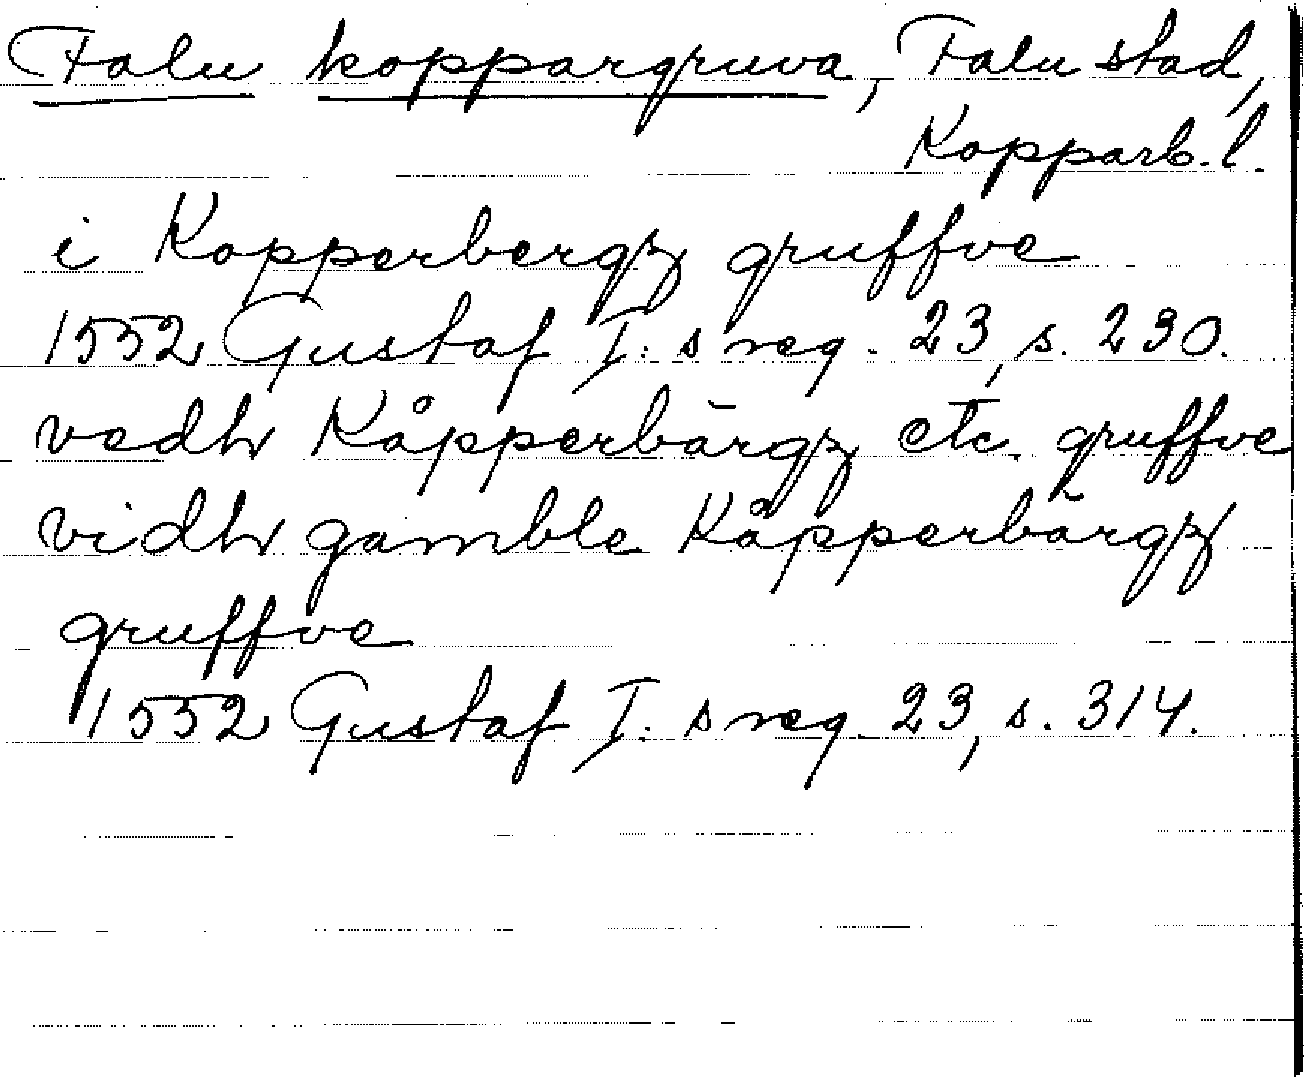 Falu koppargruva, Falu stad,
Kopparb. l.
i Kopperbergz gruffve
1552 Gustaf I:s reg. 23, s. 230.
vedh Kåpperbärgz etc. gruffve
vidh gamble Kåpperbärgz
gruffve
1552 Gustaf I:s reg. 23, s. 314.